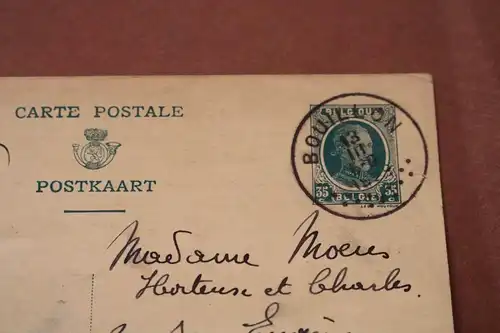 CARTE POSTALE
POSTKAART
BELGIQUE
35 BELGIË 35
BOUILLON
13
Madame Moens
Hortense et Charles